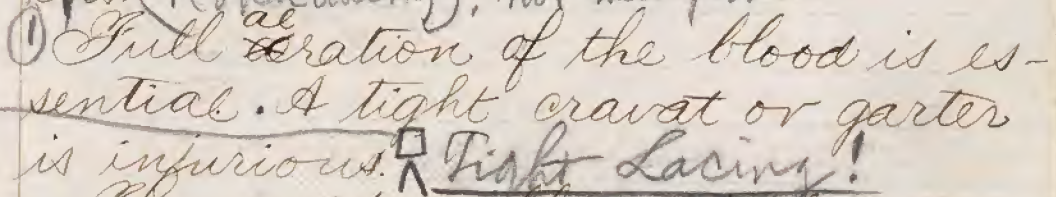 ① Full aeration of the blood is es-
sential. A tight cravat or garter
is injurious. Tight Lacing!